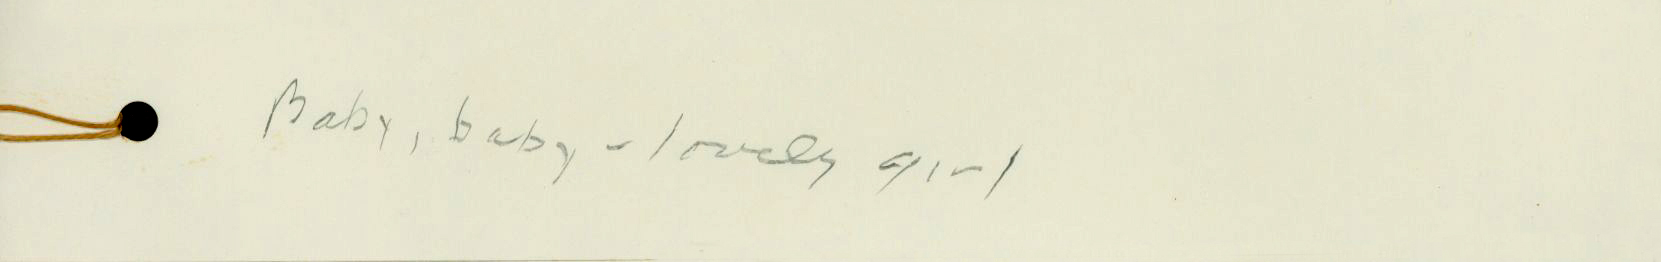 Baby, baby - lovely girl